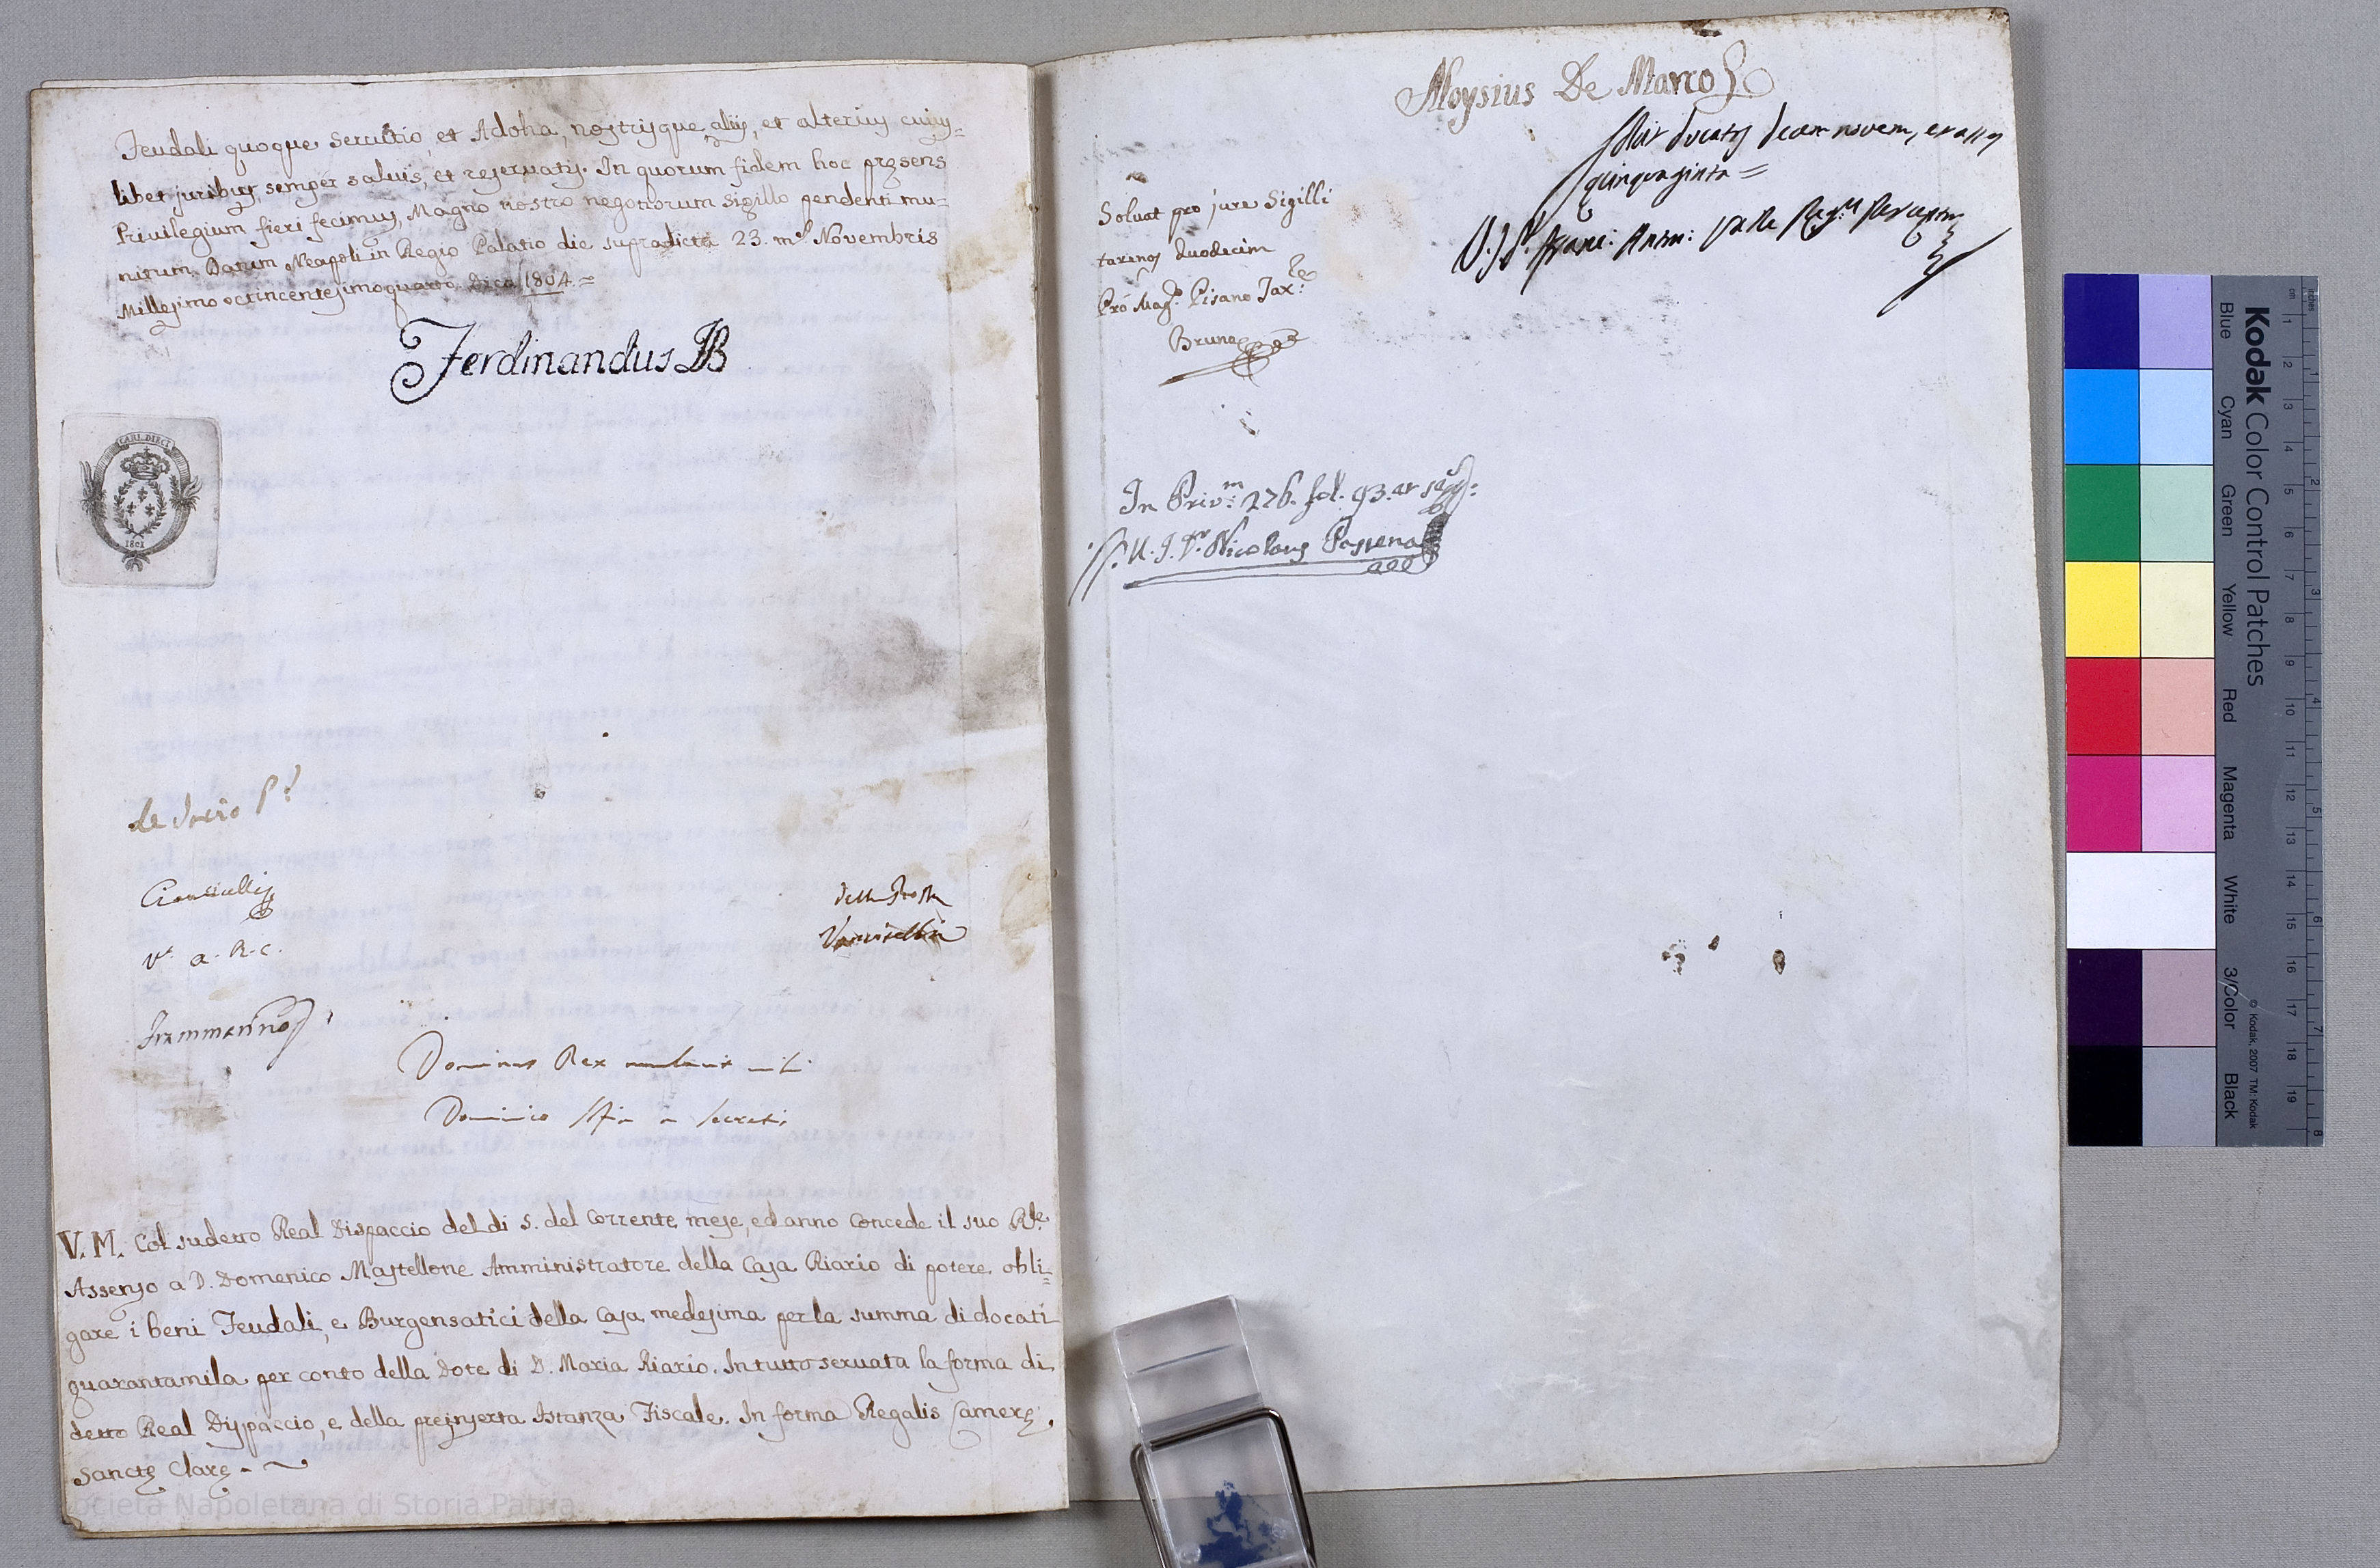 Feudali quoque servitio, et Adoha, nostrisque alijs, et alterius cujus=
libet juribus semper salvis, et reservatis. In quorum fidem hoc pręsens
Privilegium fieri fecimus, Magno nostro negotiorum sigillo pendenti mu=
nitum. Datum Neapoli in Regio Palatio die supradicta 23. mens. Novembris
Millesimo octincentesimoquarto. Dico 1804.=
Ferdinandus B
CARL. DIECI
1801
de P.
V.t a. R. C.
Dominus Rex mandavit mihi
Dominico a secretis
V. M. Col sudetto Real Dispaccio del di 5. del corrente mese, ed anno concede il suo R.le
Assenso a D. Domenico Mastellone Amministratore della Casa Riario di potere obli=
gare i beni Feudali, e Burgensatici della Casa medesima per la summa di docati
quarantamila per conto della Dote di D. Maria Riario. In tutto servata la forma di
detto Real Dispaccio, e della preinserta Istanza Fiscale. In forma Regalis Camerę
Sanctę Clarę.
Società Napoletana di Storia Patria
Aloysius De Marco
Solvat ducatos decem novem, et asses
quinquaginta=
Solvat pro jure Sigilli
tarenos duodecim
Pro Mag.co Pisano Tax.re
Bruno
In Priv.m 276. fol. 93. at
U. J. D.r Nicolaus
Kodak Color Control Patches
Blue Cyan Green Yellow Red Magenta White 3/Color Black
© Kodak, 2007 TM: Kodak
cm 1 2 3 4 5 6 7 8 9 10 11 12 13 14 15 16 17 18 19
inches 1 2 3 4 5 6 7 8